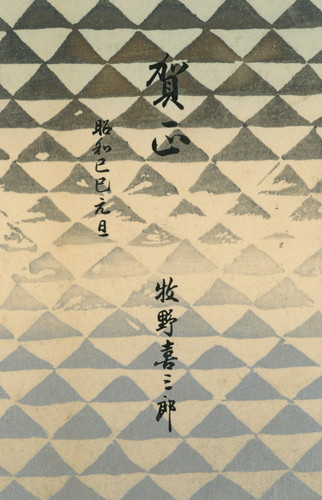 賀正
昭和己巳元旦
牧野喜三郎